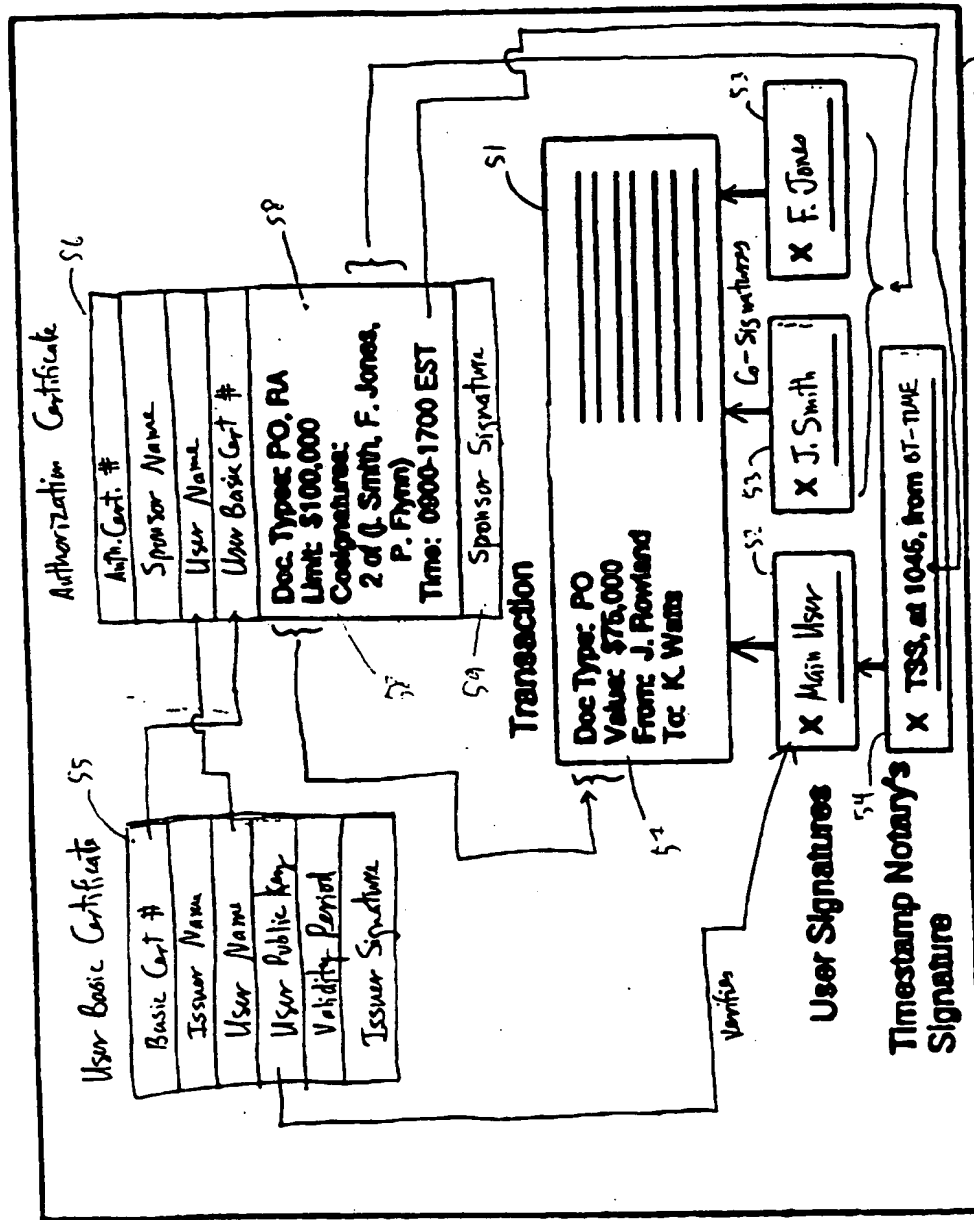 User Basic Certificate
55
Basic Cert #
Issuer Name
User Name
User Public Key
Validity Period
Issuer Signature
Authorization Certificate
56
Auth. Cert. #
Sponsor Name
User Name
User Basic Cert #
Doc. Types: PO, RA
Limit: $100,000
Cosignatures:
2 of (J. Smith, F. Jones,
P. Flynn)
Time: 0900-1700 EST
58
Sponsor Signature
59
Transaction
51
Doc Type: PO
Value: $75,000
From: J. Rowland
To: K. Watts
57
Verifies
Co-Signatures
52
X Main User
53
X J. Smith
53
X F. Jones
User Signatures
54
X TSS, at 1045, from BT-TIME
Timestamp Notary's
Signature